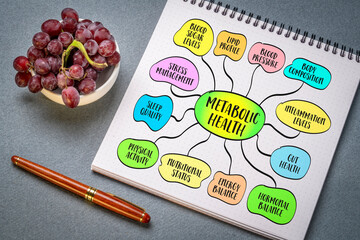 BLOOD
SUGAR
LEVELS
LIPID
PROFILE
BLOOD
PRESSURE
BODY
COMPOSITION
STRESS
MANAGEMENT
INFLAMMATION
LEVELS
SLEEP
QUALITY
METABOLIC
HEALTH
GUT
HEALTH
PHYSICAL
ACTIVITY
NUTRITIONAL
STATUS
ENERGY
BALANCE
HORMONAL
BALANCE